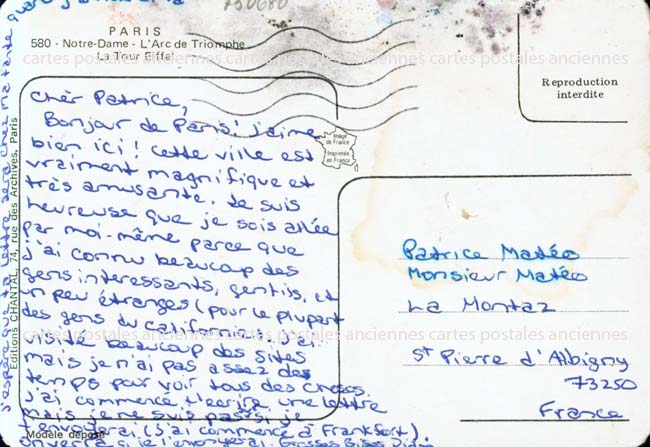 750680
PARIS
580 - Notre-Dame - L'Arc de Triomphe
La Tour Eiffel
cartes postales anciennes cartes postales anciennes
Reproduction
interdite
Image
de France
Imprimée
en France
Editions CHANTAL, 74, rue des Archives, Paris
Chèr Patrice,
Bonjour de Paris! J'aime
bien ici! Cette ville est
vraiment magnifique et
très amusante. Je suis
heureuse que je sois allée
par moi-même parce que
j'ai connu beaucoup des
gens interessants, gentils, et
un peu étranges (pour le plupart
des gens du California!). J'ai
visité beaucoup des sites
mais je n'ai pas assez des
temps pour voir tous des choses.
J'ai commencé t'ecrire une lettre
mais je ne suis pas si je
t'envoyerai (j'ai commencé à Frankfort)
si je l'envoyerai. Grosses Bises
j'espère que ta lettre sera chez ma tante
quand j'
Patrice Matéo
Monsieur Matéo
La Montaz
cartes postales anciennes cartes postales anciennes
St Pierre d'Albigny
73250
France
Modèle déposé